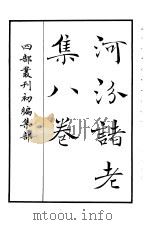 河汾諸老
集八卷
四部叢刊初編集部
mtoou.info